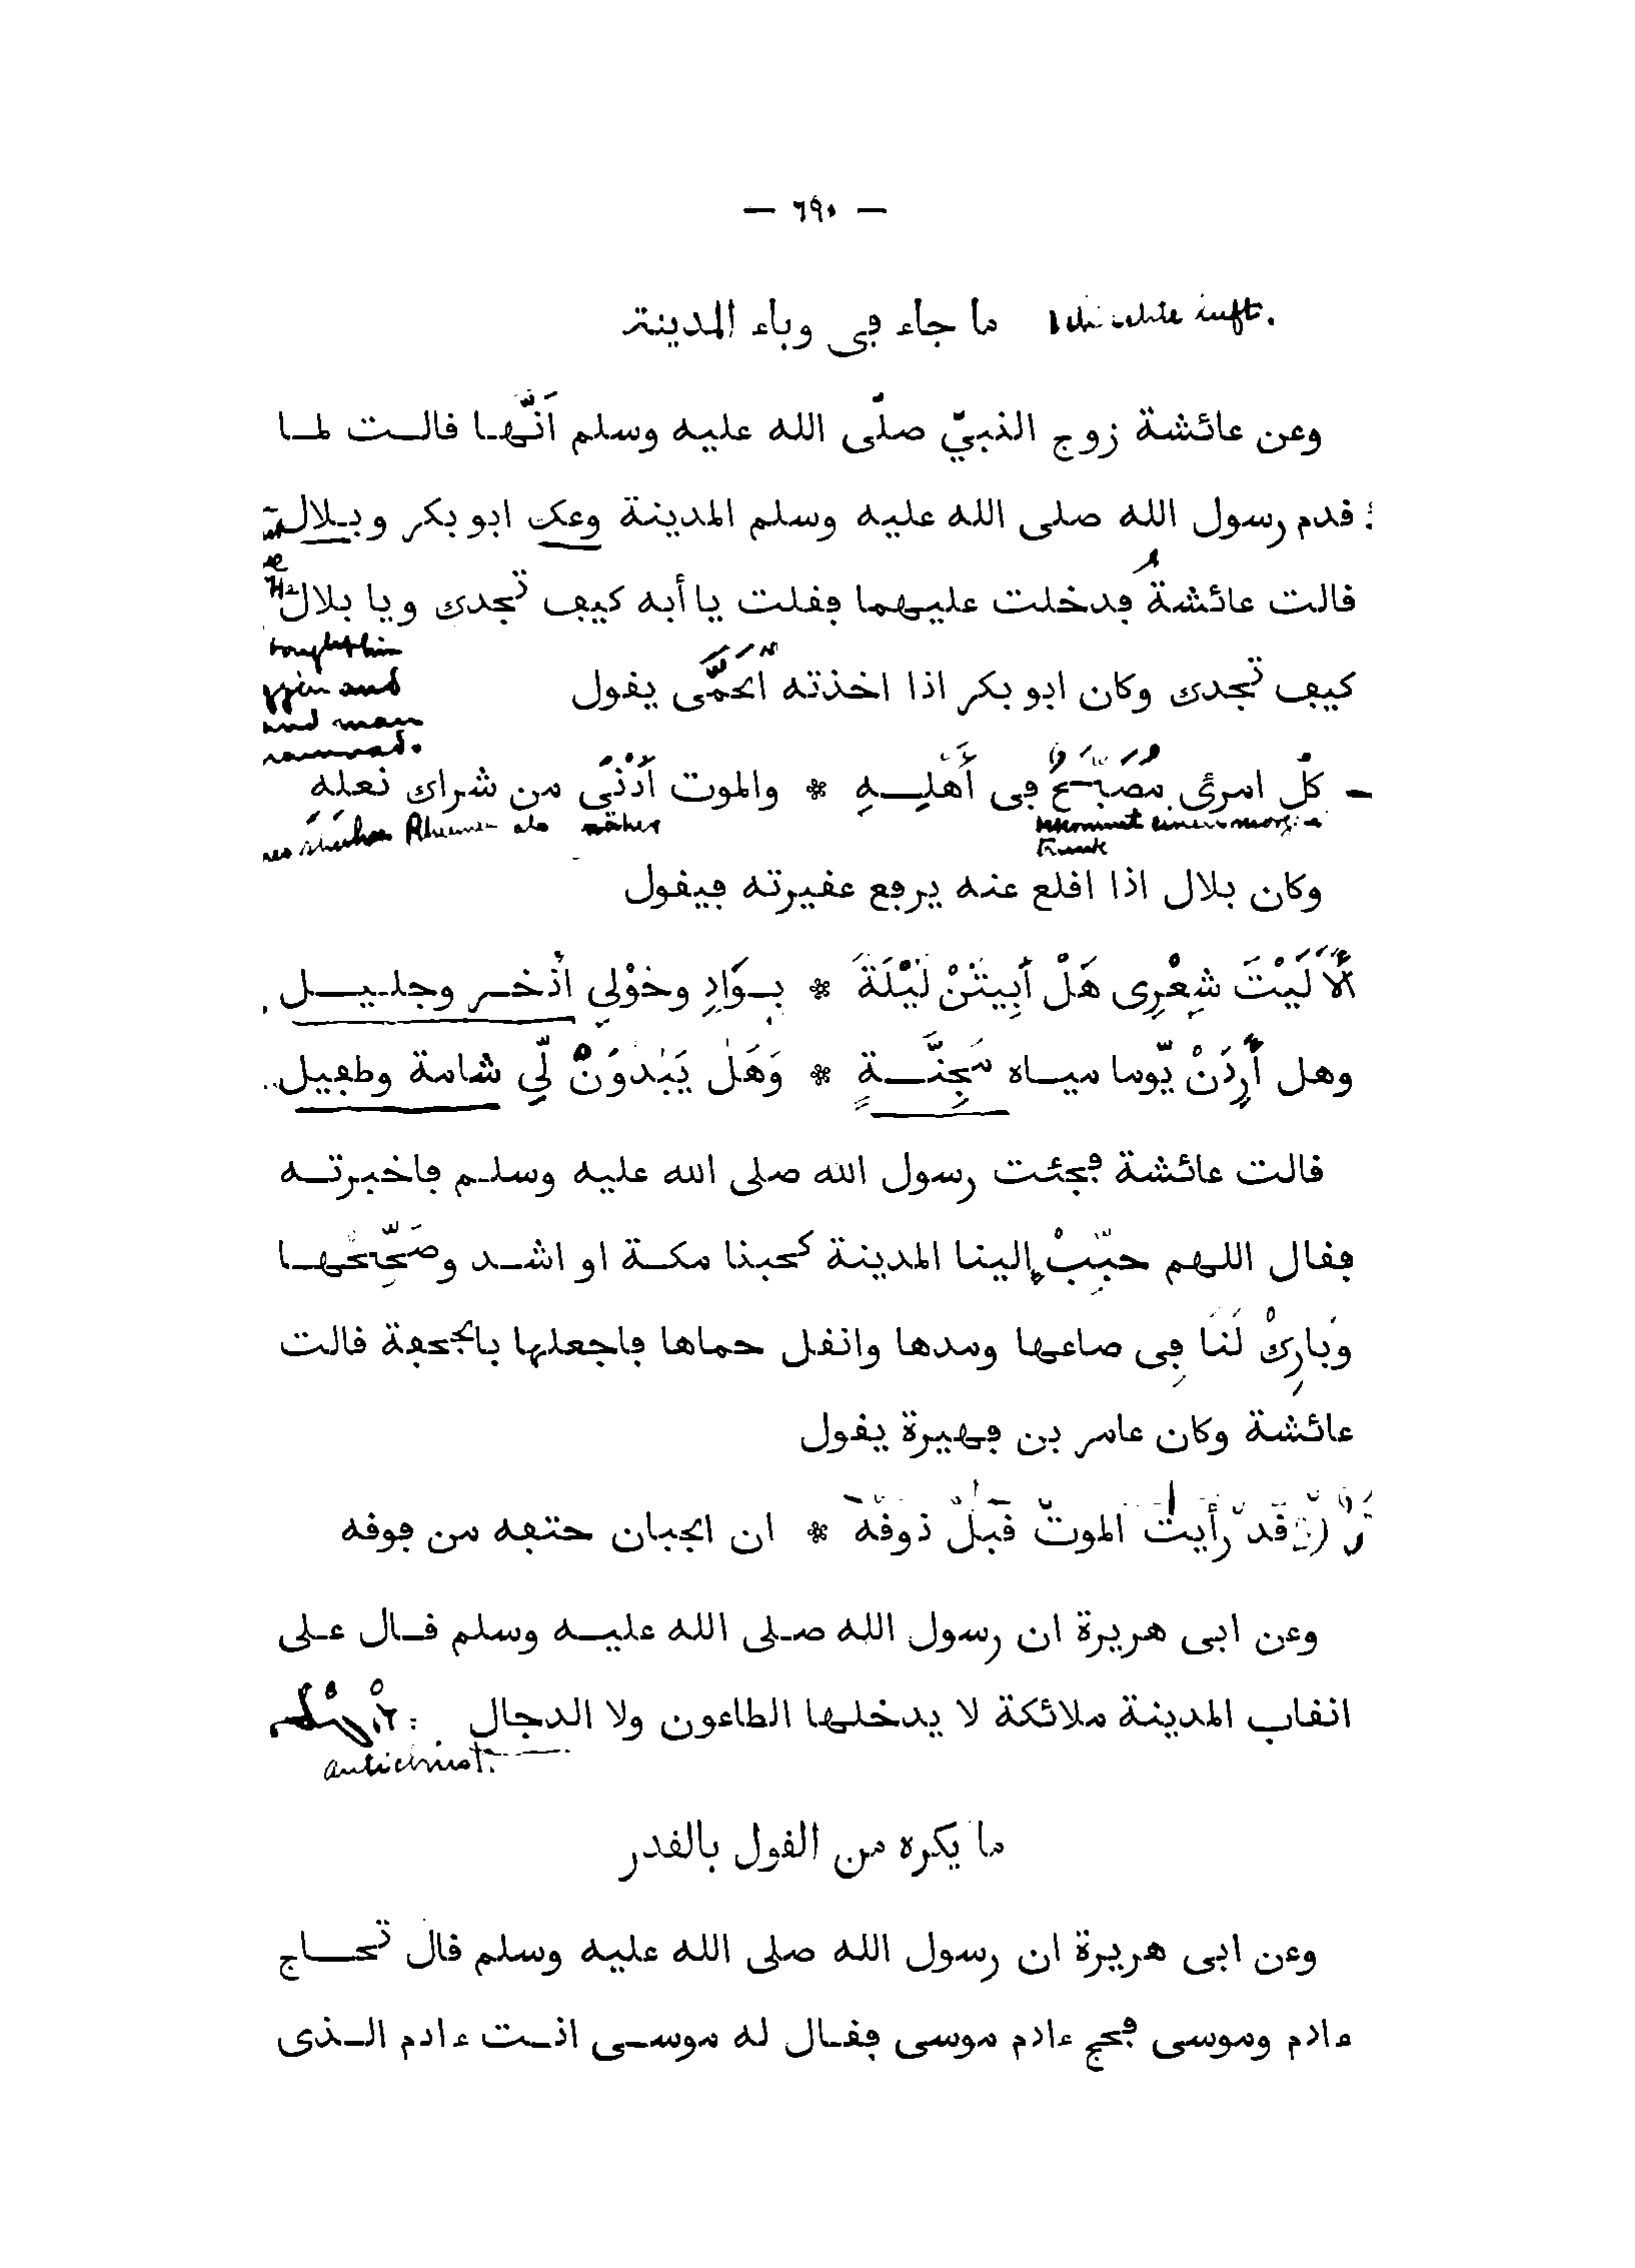 — ٦٩٠ —
ما جاء في وباء المدينة
schlechte Luft.
وعن عائشة زوج النبيّ صلّى الله عليه وسلم اَنَّها قالت لما
قدم رسول الله صلى الله عليه وسلم المدينة وعك ابو بكر وبلال
قالت عائشةُ فدخلت عليهما فقلت يا أبه كيف تجدك ويا بلال
كيف تجدك وكان ابو بكر اذا اخذته اَلْحُمَّى يقول
and
كلّ امرئ مُصَبَّحٌ في أَهْلِهِ * والموت أَدْنَى من شراك نعلِهِ
Rhiemen als näher
bekommt einen morgen
trunk
وكان بلال اذا اقلع عنه يرفع عقيرته فيقول
أَلاَ لَيْتَ شِعْرِى هَلْ أَبِيتَنْ لَيْلَةً * بِوَادٍ وحَوْلِي اذْخر وجليل
وهل أَرِدَنْ يَّوما مياه مَجِنَّةٍ * وَهَل يَبْدُوَنْ لِّي شامة وطفيل
قالت عائشة فجئت رسول الله صلى الله عليه وسلم فاخبرته
فقال اللهم حبّبْ إلينا المدينة كحبنا مكة او اشد وصَحِّحْها
وَبارِكْ لَنَا فِي صاعها ومدها وانقل حماها فاجعلها بالجحفة قالت
عائشة وكان عامر بن فهيرة يقول
قد رأيت الموت قبل ذوقه * ان الجبان حتفه من فوقه
وعن ابى هريرة ان رسول الله صلى الله عليه وسلم قال على
انقاب المدينة ملائكة لا يدخلها الطاعون ولا الدجال
antichrist.
ما يكره من القول بالقدر
وعن ابى هريرة ان رسول الله صلى الله عليه وسلم قال تحاج
ءادم وموسى فحج ءادم موسى فقال له موسى انت ءادم الذى